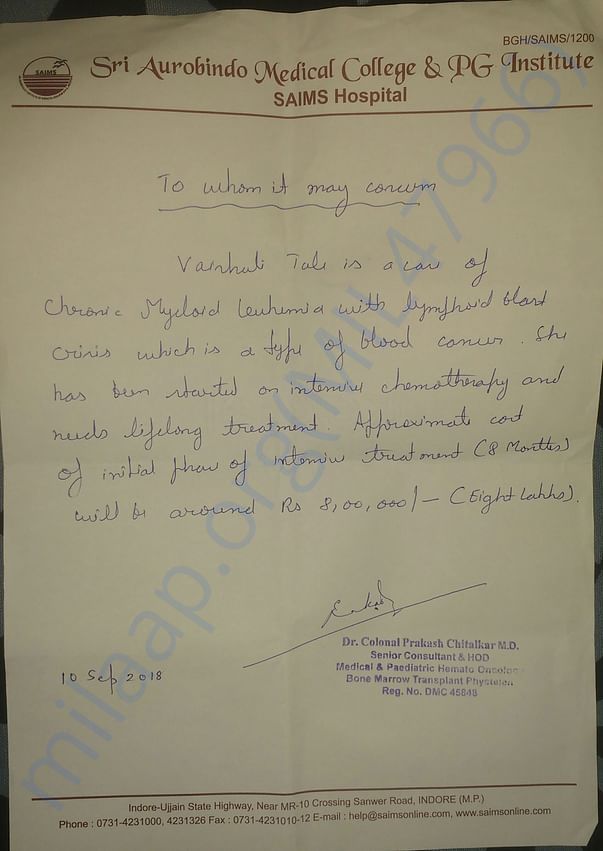 BGH/SAIMS/1200
SAIMS
Sri Aurobindo Medical College & PG Institute
SAIMS Hospital
To whom it may concern
Vaishali Tale is a case of
Chronic Myeloid Leukemia with lymphoid blast
crisis which is a type of blood cancer. She
has been started on intensive chemotherapy and
needs lifelong treatment. Approximate cost
of initial phase of intensive treatment (8 Months)
will be around Rs 8,00,000/- (Eight Lakhs).
Dr. Colonal Prakash Chitalkar M.D.
Senior Consultant & HOD
Medical & Paediatric Hemato Oncology
Bone Marrow Transplant Physician
Reg. No. DMC 45848
10 Sep 2018
milaap.org(MIL479666)
Indore-Ujjain State Highway, Near MR-10 Crossing Sanwer Road, INDORE (M.P.)
Phone : 0731-4231000, 4231326 Fax : 0731-4231010-12 E-mail : help@saimsonline.com, www.saimsonline.com